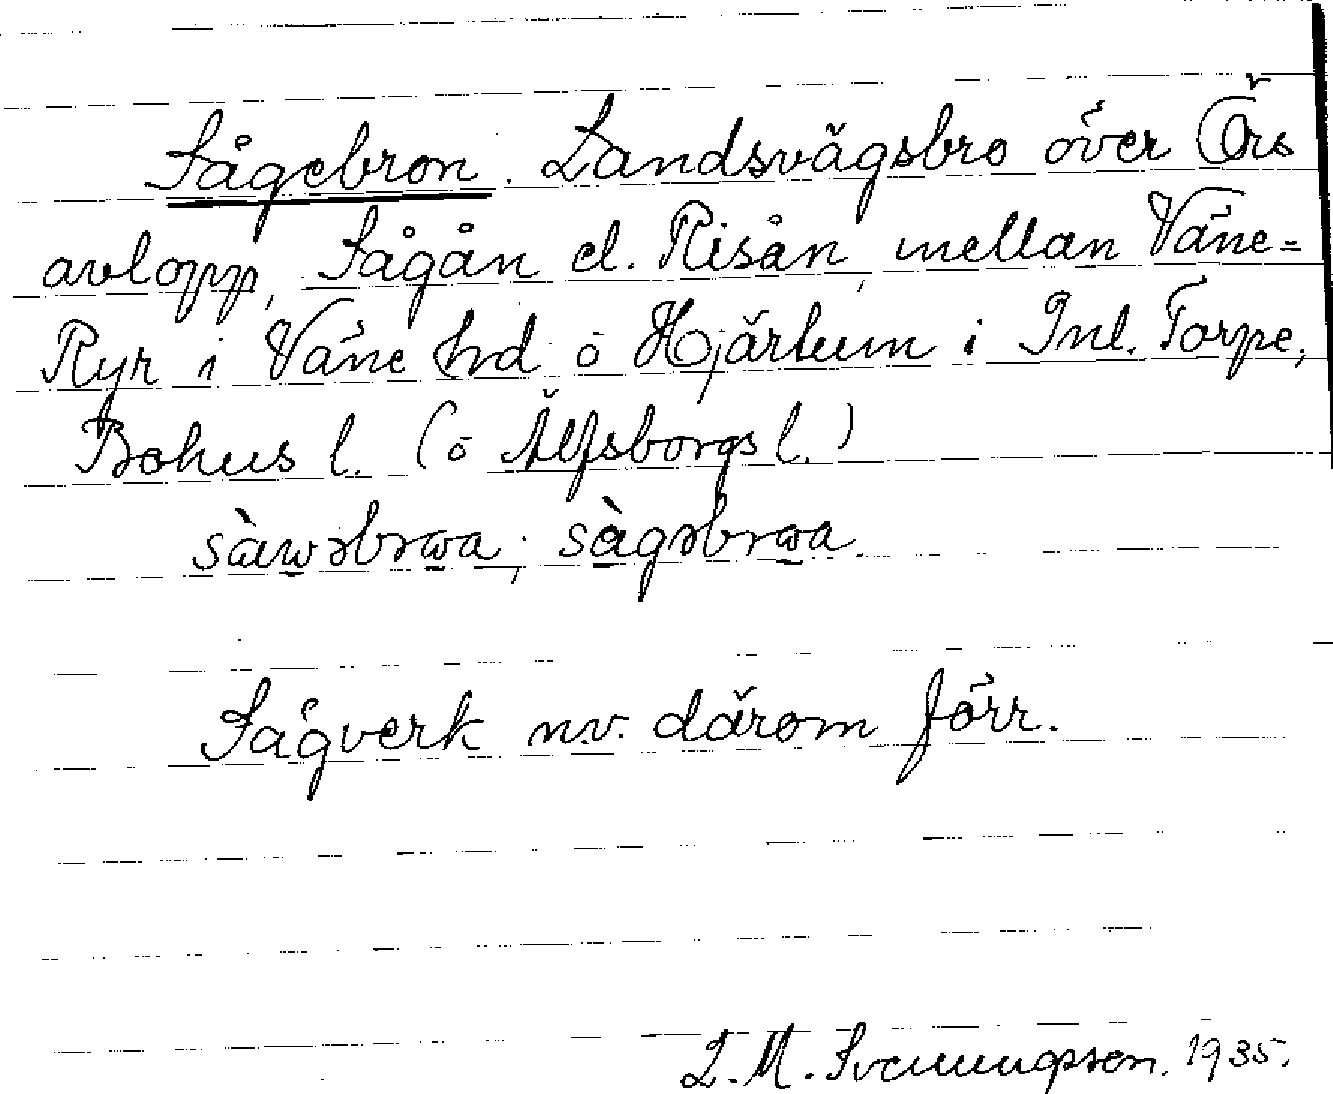 Sågebron. Landsvägsbro över Örs
avlopp, Sågån el. Risån, mellan Väne-
Ryr i Väne hd o Hjärtum i Inl. Torpe,
Bohus l. (o Älfsborgs l.)
sàwəbrωa; sàgəbrωa.
Sågverk n.v. därom förr.
L. M. Svenungsson. 1935.